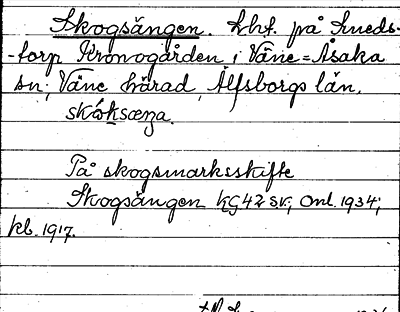 Skogsängen. Lhf. på Smeds-
-torp Kronogården i Väne-Åsaka
sn; Väne härad, Älfsborgs län.
På skogsmarksskifte
Skogsängen KG42 sv; Oml. 1934;
kb. 1917.